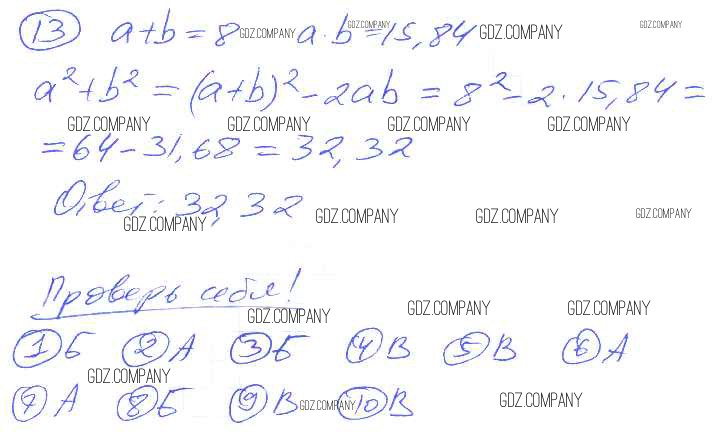 13 a+b=8 GDZ.COMPANY a·b=15,84 GDZ.COMPANY GDZ.COMPANY GDZ.COMPANY
a²+b² = (a+b)²-2ab = 8²-2·15,84 =
GDZ.COMPANY GDZ.COMPANY GDZ.COMPANY GDZ.COMPANY
=64-31,68 = 32,32
Ответ: 32,32 GDZ.COMPANY GDZ.COMPANY GDZ.COMPANY GDZ.COMPANY
Проверь себя!
GDZ.COMPANY GDZ.COMPANY GDZ.COMPANY
1 Б 2 А 3 Б 4 В 5 В 6 А
GDZ.COMPANY
7 А 8 Б 9 В GDZ.COMPANY 10 В GDZ.COMPANY